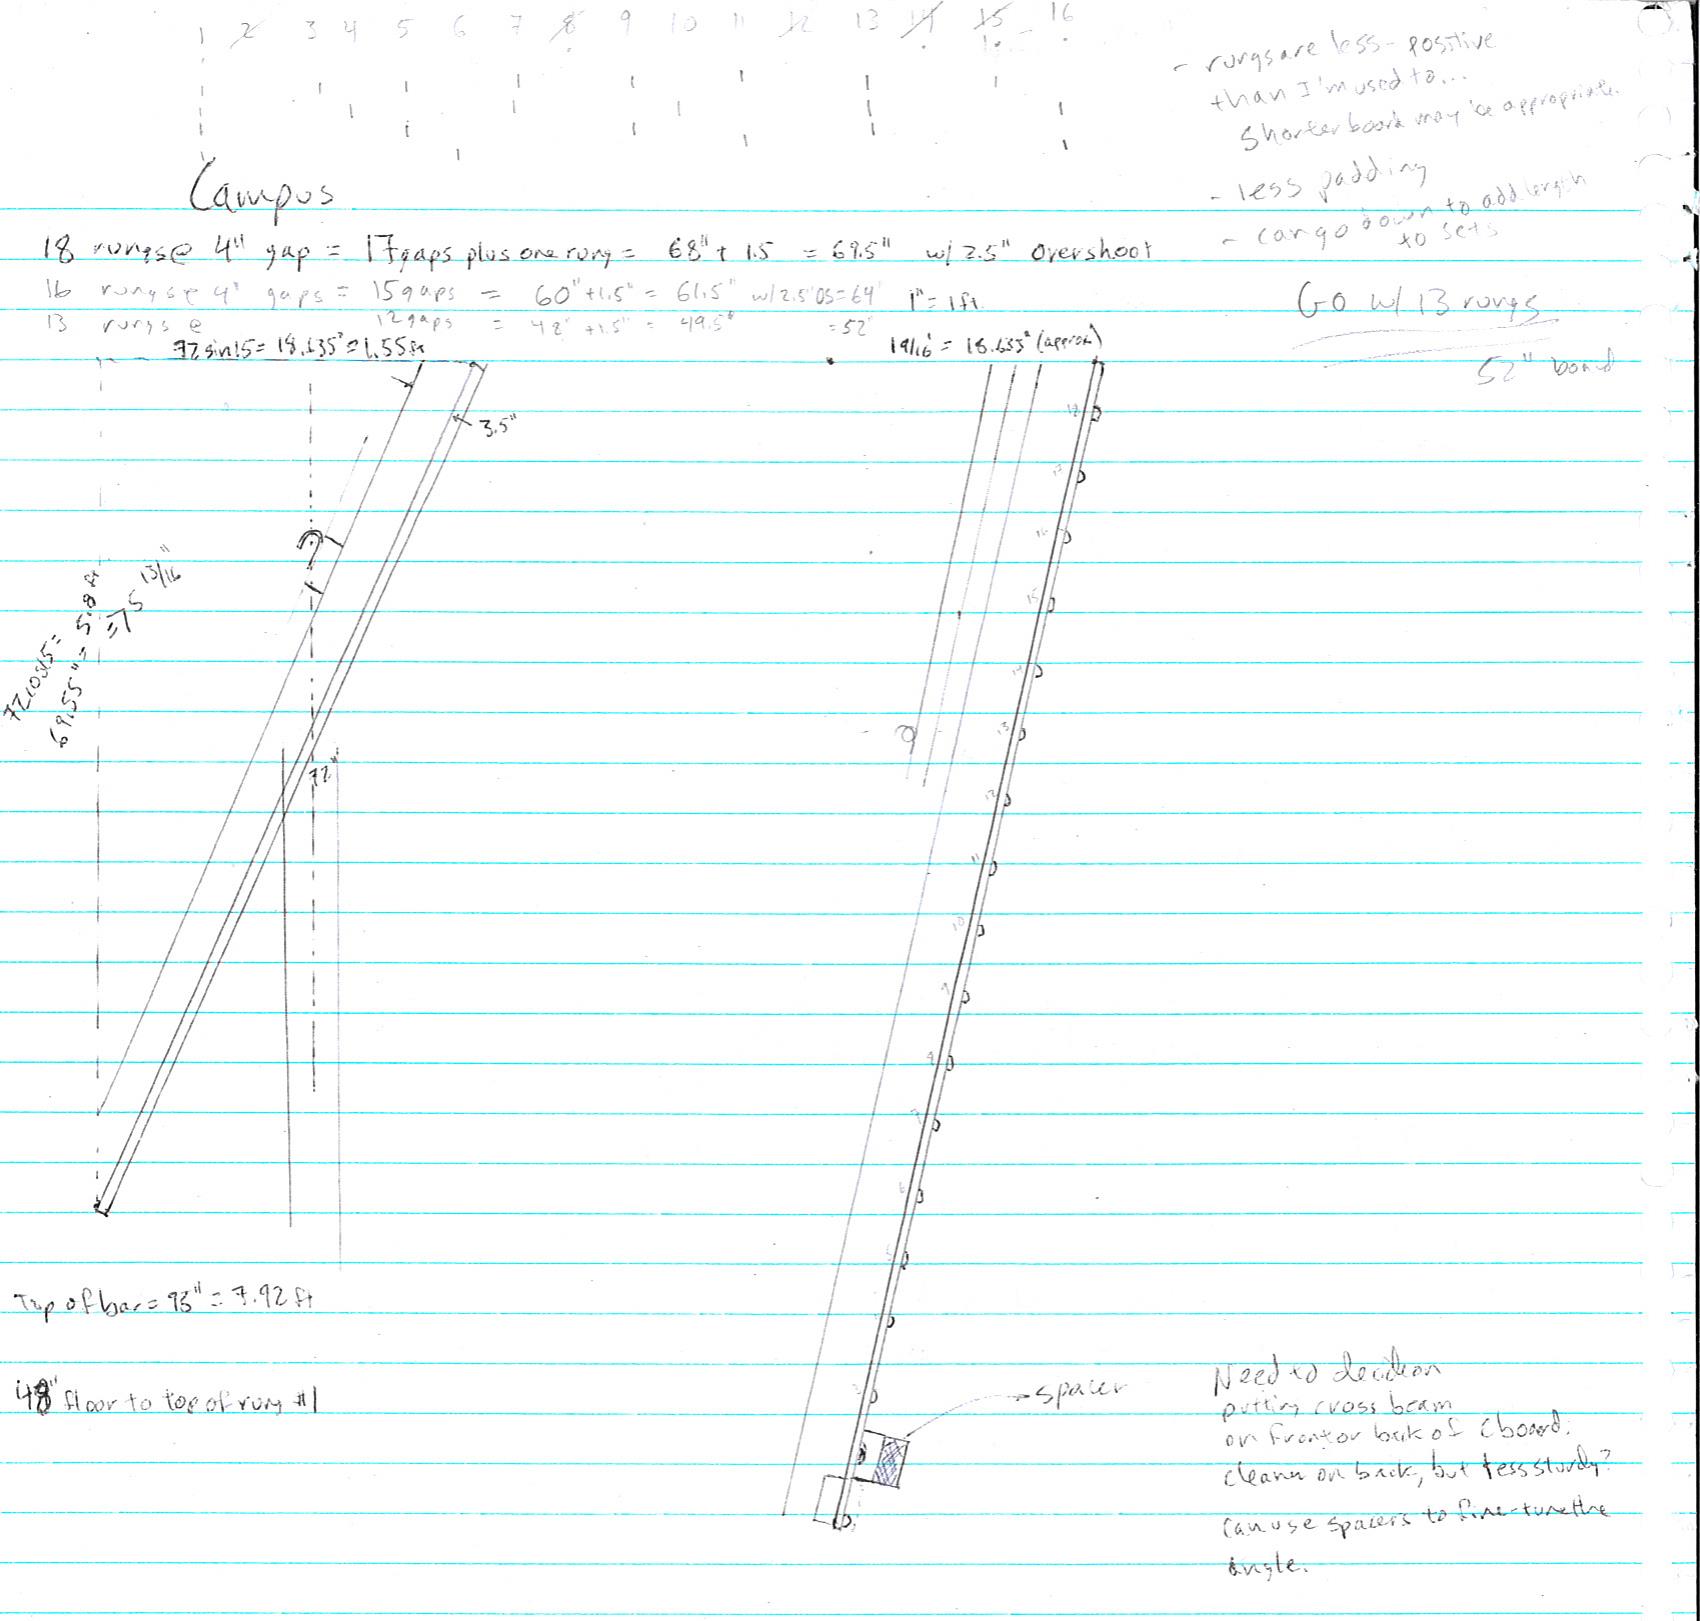 1 2 3 4 5 6 7 8 9 10 11 12 13 14 15 16
- rungs are less-positive
than I'm used to...
Shorter board may be appropriate.
- less padding
- can go down to add length
to sets
Campus
18 rungs @ 4" gap = 17 gaps plus one rung = 68" + 1.5 = 69.5" w/ 2.5" overshoot
16 rungs @ 4" gaps = 15 gaps = 60" + 1.5" = 61.5" w/ 2.5" OS = 64" 1" = 1ft
13 rungs @ 12 gaps = 48" + 1.5" = 49.5" = 52"
GO w/ 13 rungs
52" board
72 sin 15 = 18.635" = 1.55 ft
19/16" = 18.635" (approx)
3.5"
72 cos 15 =
69.55" = 5.8 ft
= 5 13/16"
72"
18
17
16
15
14
13
12
11
10
9
8
7
6
5
3
Top of bar = 95" = 7.92 ft
48" floor to top of rung #1
spacer
Need to decide on
putting cross beam
on front or back of cboard.
cleaner on back, but less sturdy?
can use spacers to fine-tune the
angle.